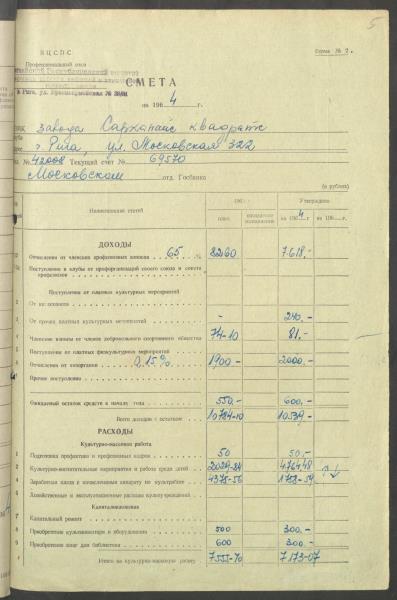 5
ВЦСПС
Форма № 2.
Профессиональный союз
СМЕТА
г. Рига, ул.
на 1964 г.
завода Саркандайс квадратс
г. Рига, ул. Московская 322
№ 42008 Текущий счет № 69570
Московском отд. Госбанка
(в рублях)
Наименование статей
196
Утверждено
план
ожидаемое исполнение
на 1964 г.
на 196 г.
ДОХОДЫ
Отчисления от членских профсоюзных взносов 65 % 8260 7618.-
Поступления в клубы от профорганизаций своего союза и совета профсоюзов
Поступления от платных культурных мероприятий
От
От прочих платных культурных мероприятий - 240.-
Членские взносы от членов добровольного спортивного общества 74-10 81.-
Поступления от платных физкультурных мероприятий
Отчисления от хозорганов 0,15% 1900.- 2000.-
Прочие поступления
Ожидаемый остаток средств к началу года 550.- 600.-
Всего доходов с остатком 10784-10 10539.-
РАСХОДЫ
Культурно-массовая работа
Подготовка профактива и профсоюзных кадров 50 50.-
Культурно-воспитательные мероприятия и работа среди детей 2029-84 4764-48
Заработная плата с начислениями аппарату по культработе 4375-56
Хозяйственные и эксплуатационные расходы культучреждений
Капиталовложения
Капитальный ремонт
Приобретение культинвентаря и оборудования 500 300.-
Приобретение книг для библиотеки 600 300.-
Итого на культурно-массовую работу 7555-40 7173-07